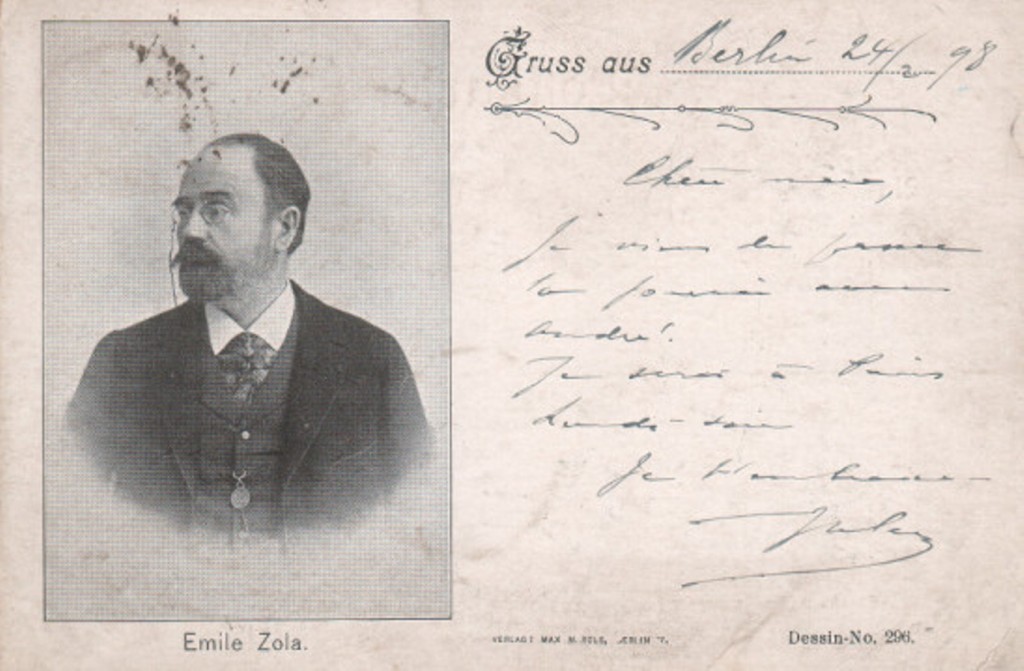 Gruss aus Berlin 24/2 98
Je viens de passer
la soirée avec
André.
Je serai à Paris
lundi-soir
Je t'embrasse
Jules
Emile Zola.
VERLAG: MAX BERLIN
Dessin-No. 296.